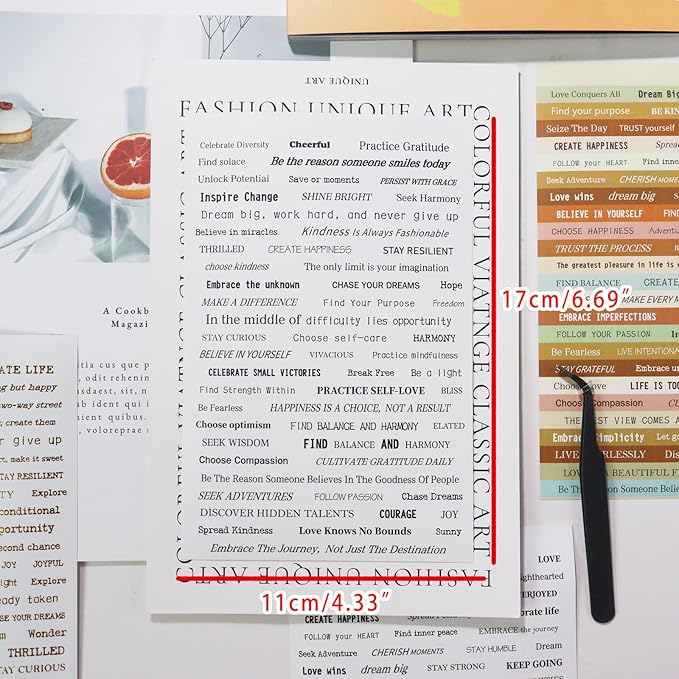 UNIQUE ART
FASHION UNIQUE ART
COLORFUL VIATNGE CLASSIC ART
Celebrate Diversity Cheerful Practice Gratitude
Find solace Be the reason someone smiles today
Unlock Potential Save or moments PERSIST WITH GRACE
Inspire Change SHINE BRIGHT Seek Harmony
Dream big, work hard, and never give up
Believe in miracles Kindness Is Always Fashionable
THRILLED CREATE HAPPINESS STAY RESILIENT
choose kindness The only limit is your imagination
Embrace the unknown CHASE YOUR DREAMS Hope
MAKE A DIFFERENCE Find Your Purpose Freedom
In the middle of difficulty lies opportunity
STAY CURIOUS Choose self-care HARMONY
BELIEVE IN YOURSELF VIVACIOUS Practice mindfulness
CELEBRATE SMALL VICTORIES Break Free Be a light
Find Strength Within PRACTICE SELF-LOVE BLISS
Be Fearless HAPPINESS IS A CHOICE, NOT A RESULT
Choose optimism FIND BALANCE AND HARMONY ELATED
SEEK WISDOM FIND BALANCE AND HARMONY
Choose Compassion CULTIVATE GRATITUDE DAILY
Be The Reason Someone Believes In The Goodness Of People
SEEK ADVENTURES FOLLOW PASSION Chase Dreams
DISCOVER HIDDEN TALENTS COURAGE JOY
Spread Kindness Love Knows No Bounds Sunny
Embrace The Journey, Not Just The Destination
FASHION UNIQUE ART
17cm/6.69″
11cm/4.33″
A Cookb
Magazi
ATE LIFE
ing but happy
two-way street
, create them
er give up
rt, make it sweet
TAY RESILIENT
TY Explore
conditional
portunity
second chance
JOY JOYFUL
ight Explore
ady taken
SE YOUR DREAMS
m Wonder
THRILLED
AY CURIOUS
Love Conquers All Dream Big
Find your purpose BE KIN
Seize The Day TRUST yourself
CREATE HAPPINESS Spread
FOLLOW your HEART Find inner
Seek Adventure CHERISH MOMENTS
Love wins dream big
BELIEVE IN YOURSELF FIND
CHOOSE HAPPINESS Adventur
TRUST THE PROCESS
The greatest pleasure in life is
FIND BALANCE CREATE
MAKE EVERY M
EMBRACE IMPERFECTIONS
FOLLOW YOUR PASSION In
Be Fearless LIVE INTENTIONAL
STAY GRATEFUL Embrace un
Choose Love LIFE IS TOO
Choose Compassion CUL
THE BEST VIEW COMES A
Embrace Simplicity Let go
LIVE FEARLESSLY Dis
LOVE A BEAUTIFUL F
Be The Reason Someone Believes
LOVE
lighthearted
ERJOYED
brate life
CREATE HAPPINESS Spread
FOLLOW your HEART Find inner peace EMBRACE the journey
Seek Adventure CHERISH MOMENTS STAY HUMBLE Dream
Love wins dream big STAY STRONG KEEP GOING